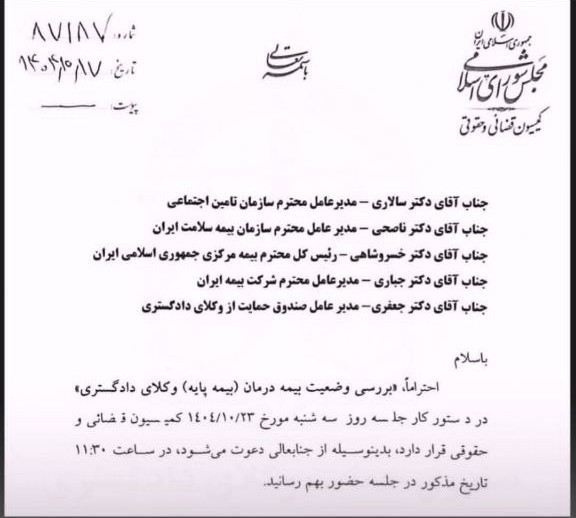 جمهوری اسلامی ایران
مجلس شورای اسلامی
کمیسیون قضائی و حقوقی
باسمه تعالی
شماره: ۸۷۱۸۷
تاریخ: ۱۴۰۴/۱۰/۱۷
پیوست:
جناب آقای دکتر سالاری – مدیرعامل محترم سازمان تامین اجتماعی
جناب آقای دکتر ناصحی – مدیر عامل محترم سازمان بیمه سلامت ایران
جناب آقای دکتر خسروشاهی – رئیس کل محترم بیمه مرکزی جمهوری اسلامی ایران
جناب آقای دکتر جباری – مدیرعامل محترم شرکت بیمه ایران
جناب آقای دکتر جعفری– مدیر عامل صندوق حمایت از وکلای دادگستری
باسلام
احتراماً، «بررسی وضعیت بیمه درمان (بیمه پایه) وکلای دادگستری»
در دستور کار جلسه روز سه شنبه مورخ ۱۴۰۴/۱۰/۲۳ کمیسیون قضائی و
حقوقی قرار دارد، بدینوسیله از جنابعالی دعوت می‌شود، در ساعت ۱۱:۳۰
تاریخ مذکور در جلسه حضور بهم رسانید.